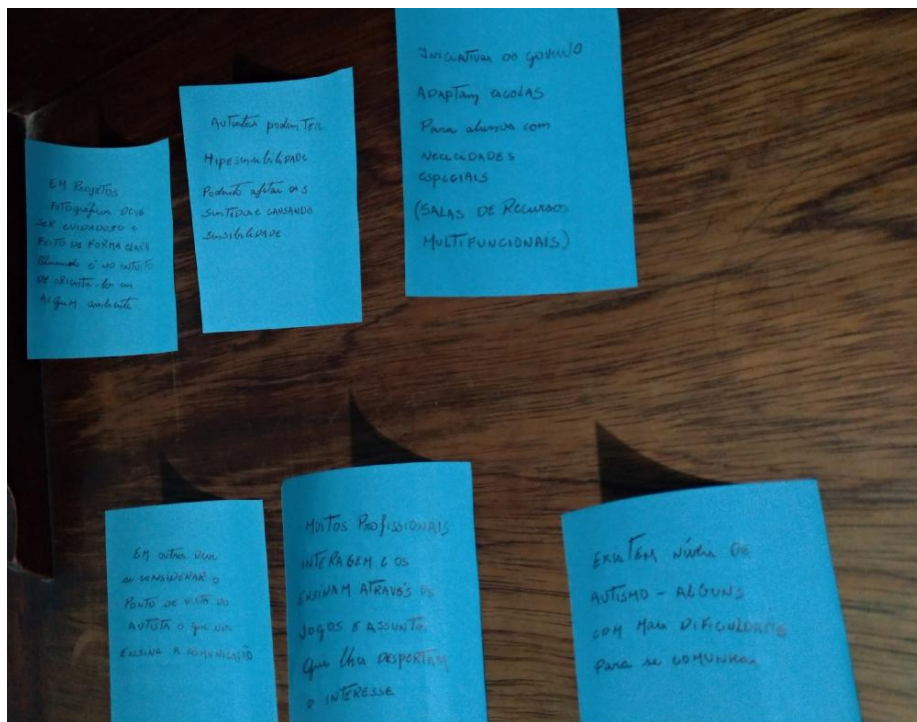 EM PROJETOS
FOTOgráficos DEVE
SER CUIDADOSO e
FEITO DE FORMA CLARA
é NO INTUITO
DE ORIENTA-los em
Algum ambiente
AUTISTAS podem TER
HIPESENSIBILIDADE
Podendo afetar os
SENTIDOS E CAUSANDO
SENSIBILIDADE
INICIATIVAS DO GOVERNO
ADAPTAM ESCOLAS
Para alunos com
NECECIDADES
ESPECIAIS
(SALAS DE RECURSOS
MULTIFUNCIONAIS)
EM outros DEVE
se CONSIDERAR O
PONTO DE VISTA DO
AUTISTA O que nos
ENSINA A COMUNICAÇÃO
MUITOS PROFISSIONAIS
INTERAGEM E OS
ENSINAM ATRAVÉS DE
JOGOS E ASSUNTO
Que lhes DESPERTAM
O INTERESSE
EXISTEM níveis DE
AUTISMO - ALGUNS
COM Mais DIFICULDADES
Para se COMUNICAR